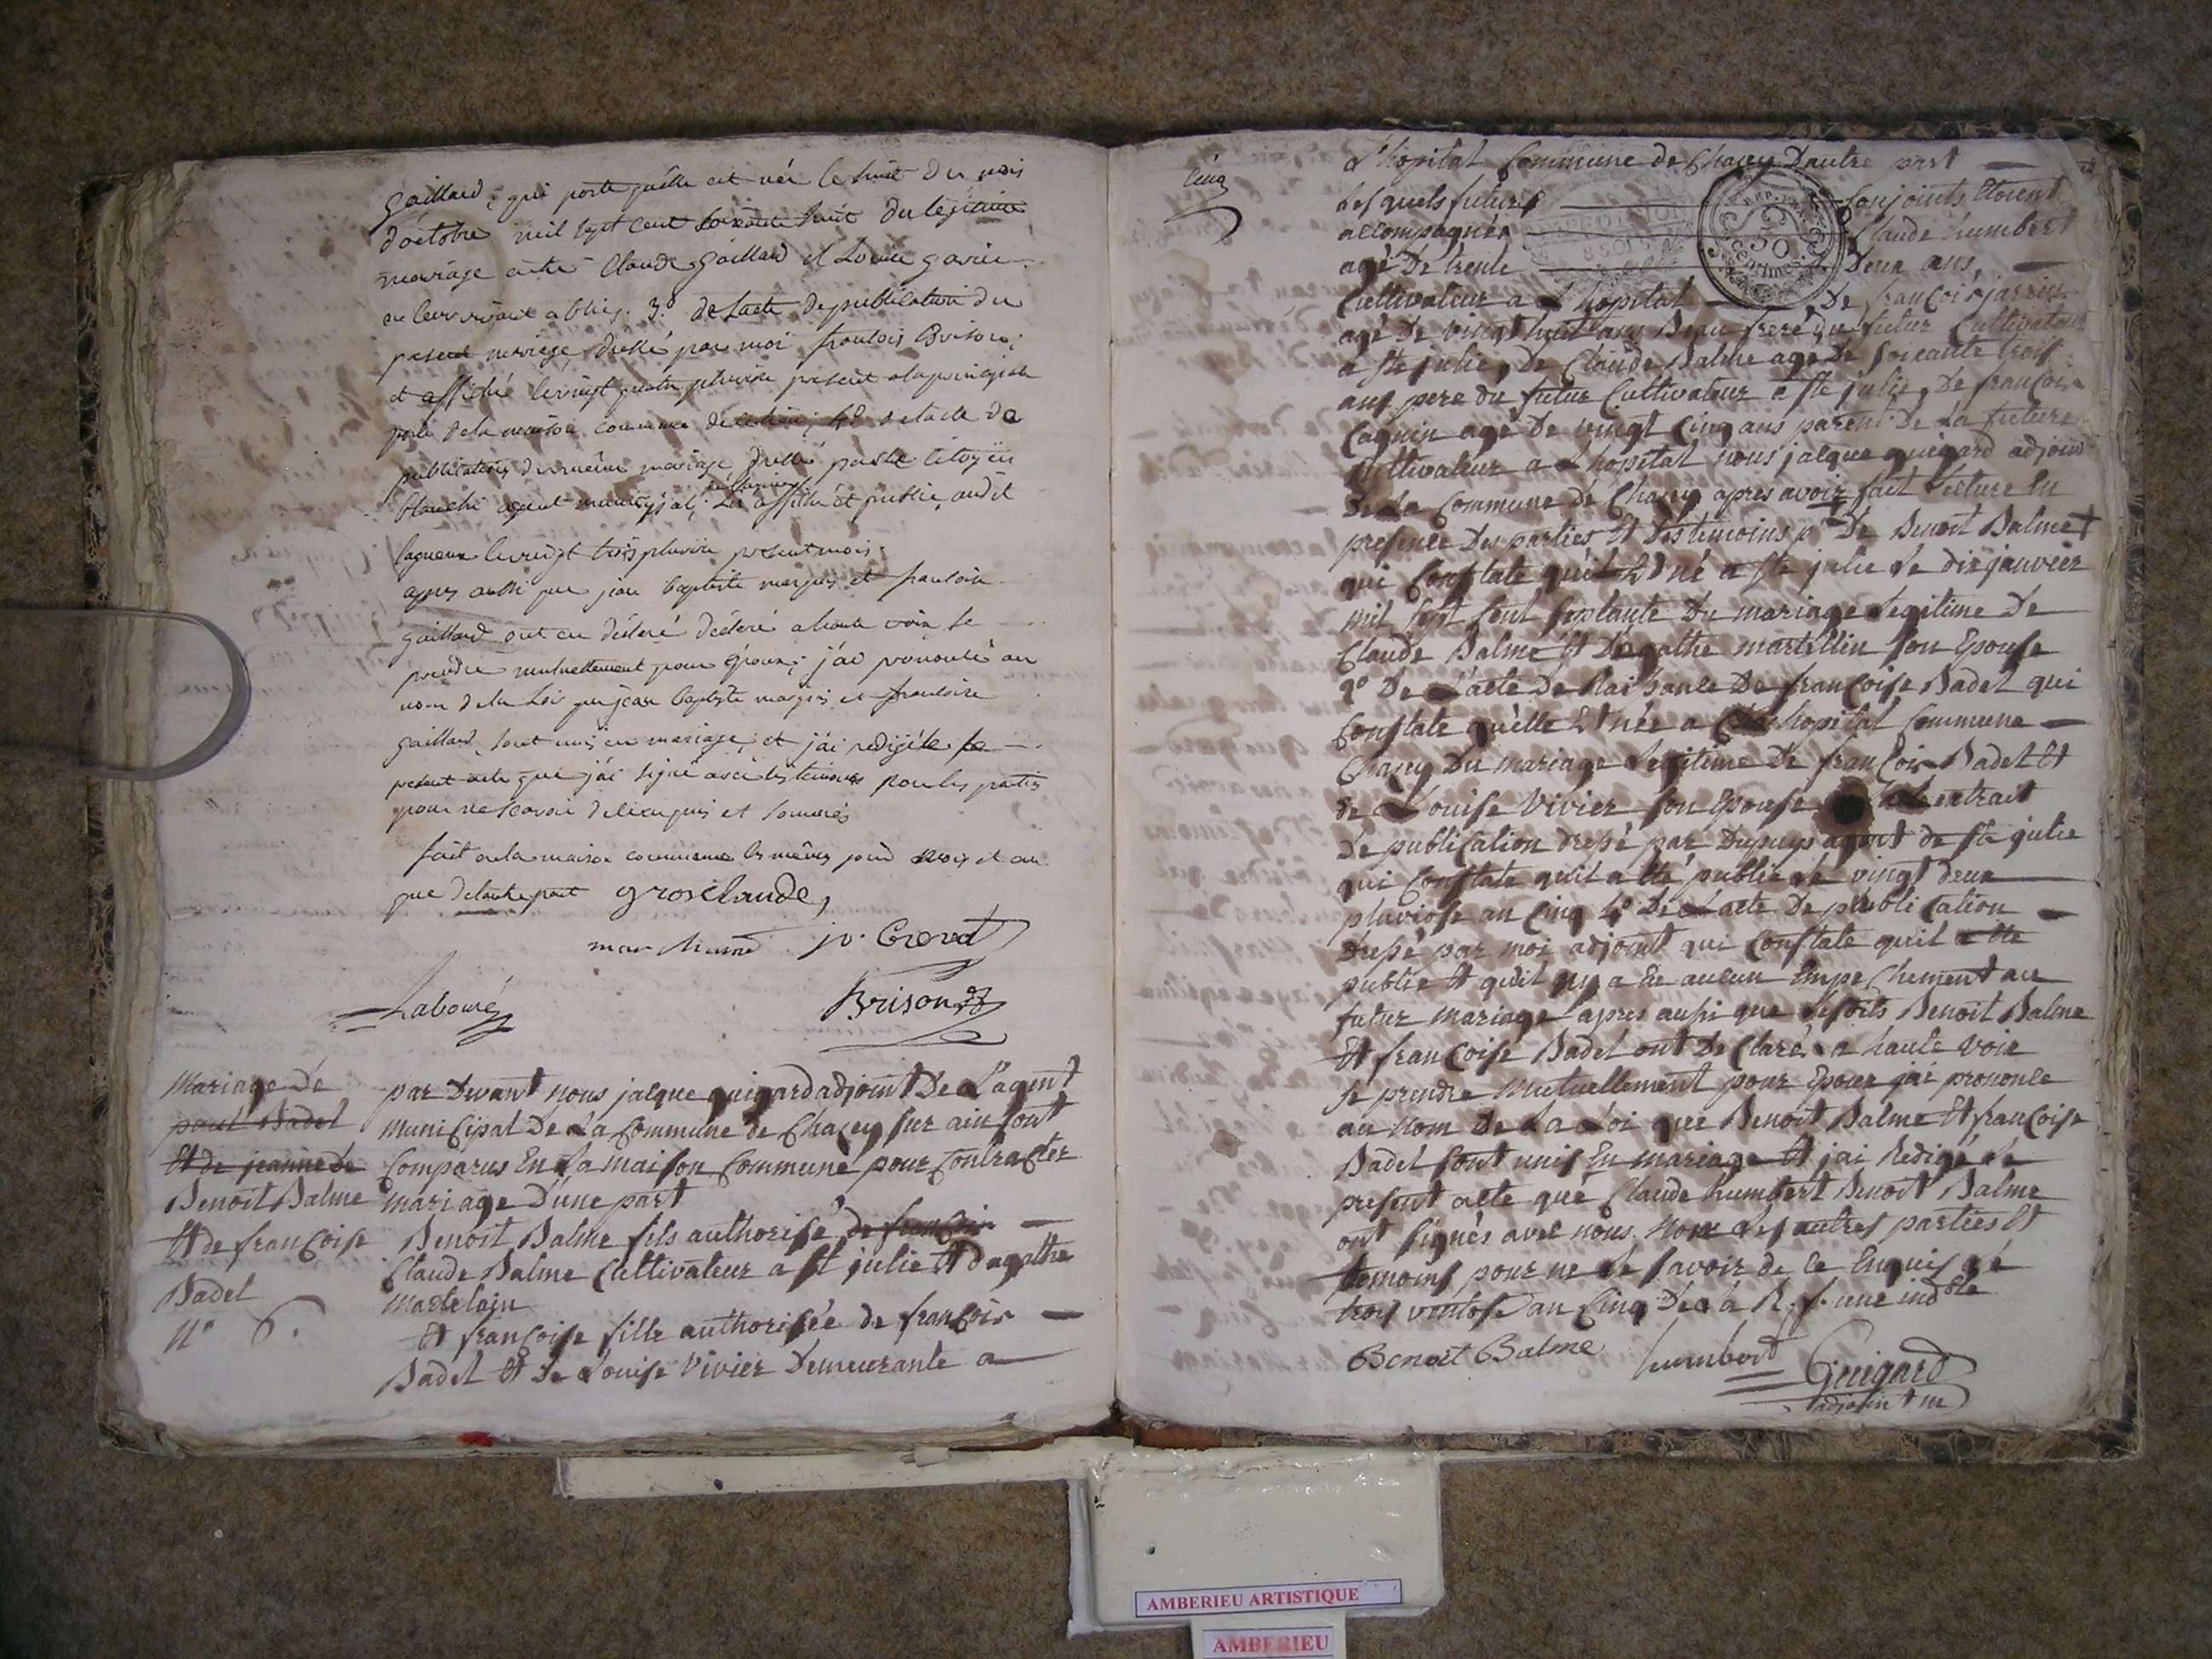 gaillard, qui porte qu'elle est née le huit du mois
d'octobre mil sept cent soixante huit du légitime
mariage entre Claude gaillard et Louise
3.° de l'acte de publication du
present mariage, dressé par moi francois Brison;
et affiché le vingt quatre pluviose present a la principale
porte de la maison commune de 4.° de l'acte de
publication du même mariage dressé par le citoyen
blanchi agent municipal; affiché et publié audit
lagneux le vingt trois pluviose present mois.
apres aussi que jean baptiste et francoise
gaillard ont eu déclaré a haute voix se
prendre mutuellement pour époux; j'ai prononcé au
nom de la Loi que jean baptiste et francoise
gaillard, sont unis en mariage; et j'ai redigé le
present acte que j'ai signé avec les temoins non les parties
pour ne scavoir de ce enquis et sommés
fait en la maison commune les mêmes jour mois et an
que de l'autre part grosclaude,
marchand
Labouré
Brison
Mariage De
paul Badel
Et de jeanne de
Benoit Balme
Et de francoise
Badel
N° 6.
par Devant nous jacque guigard adjoint De L'agent
municipal De La Commune de Chazey sur ain sont
Comparus En La maison Commune pour Contracter
mariage D'une part
Benoit Balme fils authorisé de francois
Claude Balme Cultivateur a st julie Et dagathe
Martelain
Et francoise fille authorisée de francois
Badel Et De Louise Vivier Demeurante a
Cinq
L'hopital Commune de Chazey D'autre part
Lesquels futurs Conjoints Etoient
accompagnés Claude humbert
agé De trente Deux ans,
Cultivateur a L'hopital De francois jarrin
agé De vingt huit ans Beau frere du futur Cultivateur
a ste julie, De Claude Balme agé De soixante trois
ans pere du futur Cultivateur a ste julie, De francois
agé De vingt Cinq ans parent De La future
Cultivateur a L'hopital nous jacque guigard adjoint
De La Commune de Chazey apres avoir fait Lecture En
presence Des parties Et Des temoins De Benoit Balme
qui Constate qu'il Est né a ste julie Le dix janvier
mil sept Cent septante Du mariage Legitime De
Claude Balme Et D'agathe martellin son Epouse
2° De L'acte De Naissance De francoise Badel qui
Constate qu'elle Est née a L'hopital Commune
Chazey Du mariage Legitime De francois Badel Et
de Louise Vivier son Epouse extrait
De publication dressé par Dupuys agent de ste julie
qui Constate qu'il a Eté publié Le vingt deux
pluviose an Cinq 4° De L'acte De publication
Dressé par moi adjoint qui Constate qu'il a Eté
publié Et qu'il ny a Eu aucun Empechement au
futur mariage apres aussi que Lesdits Benoit Balme
Et francoise Badel ont Declaré a haute voix
se prendre Mutuellement pour Epoux jai prononcé
au Nom De La Loi que Benoit Balme Et francoise
Badel sont unis En mariage Et jai Redigé Le
present acte que Claude humbert Benoit Balme
ont signés avec nous Non Les autres parties Et
temoins pour ne Le savoir de ce Enquis Le
trois ventose an Cinq De La R. f. une ind ble
Benoit Balme humbert Guigard
adjoint m
REP. FRA.
50
Centimes
AMBERIEU ARTISTIQUE
AMBERIEU